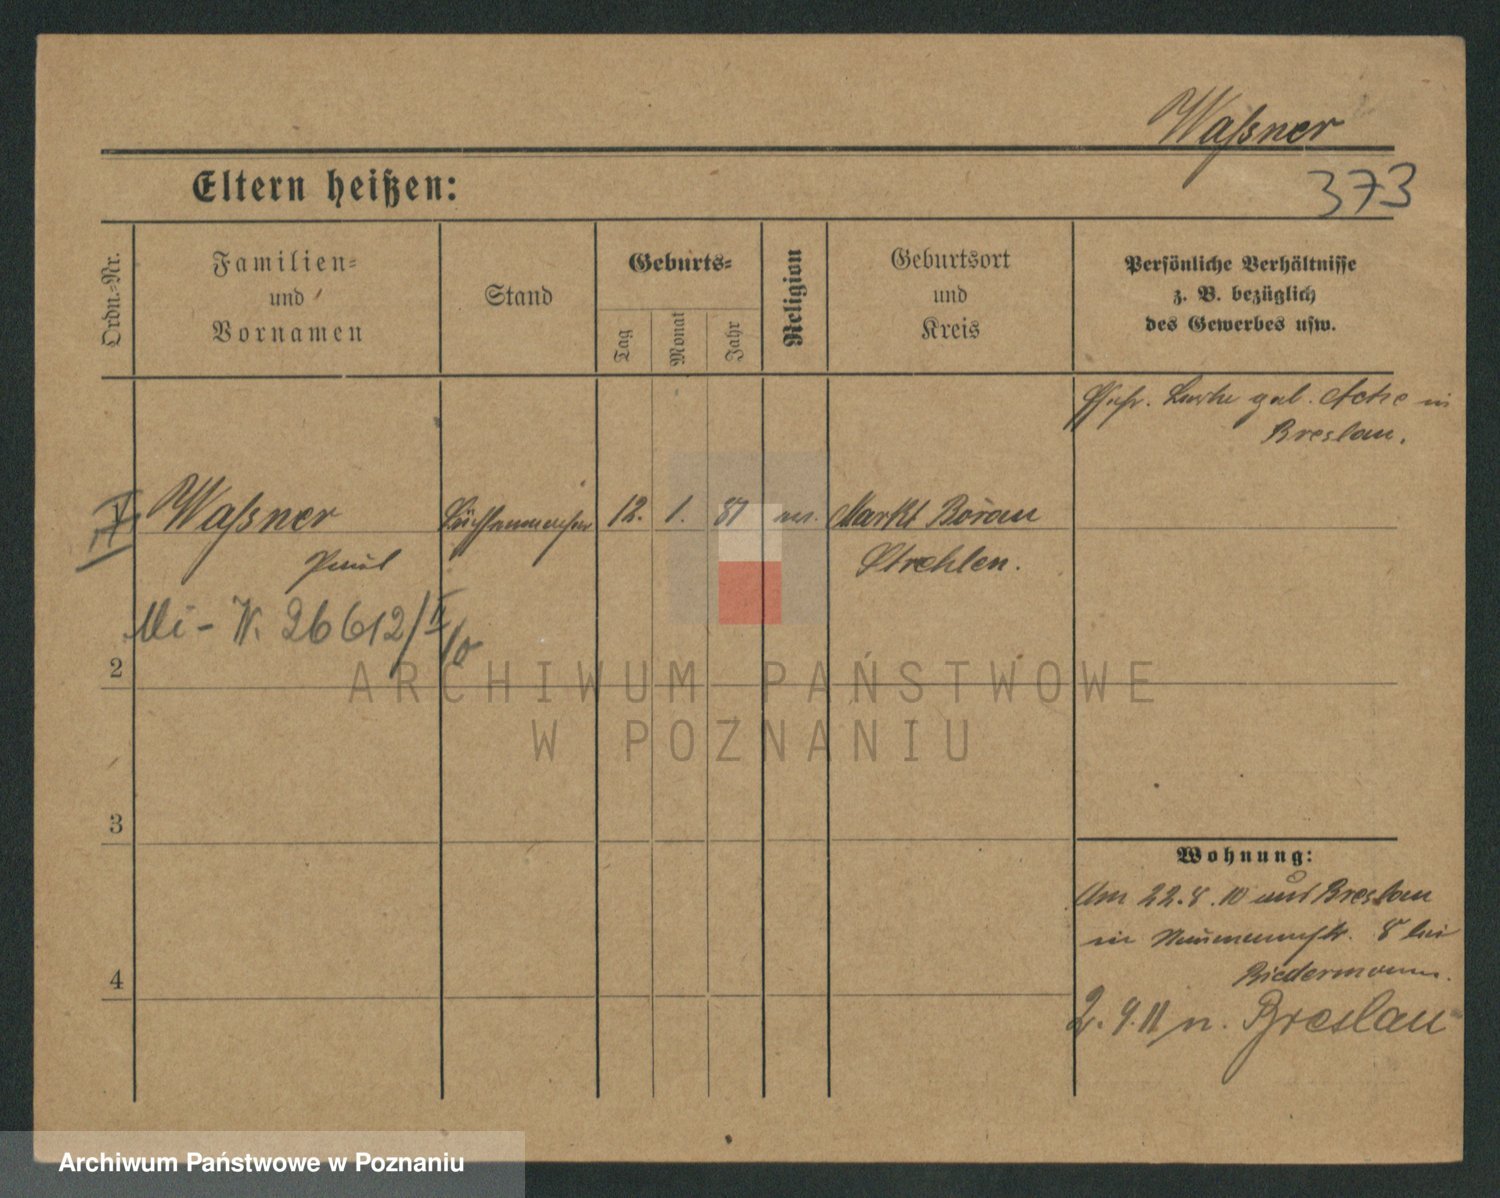 Waßner
373
Eltern heißen:
Ordn.-Nr.
Familien-
und
Vornamen
Stand
Geburts-
Tag
Monat
Jahr
Religion
Geburtsort
und
Kreis
Persönliche Verhältnisse
z. B. bezüglich
des Gewerbes usw.
gbl. Acte in
Breslau.
Waßner
Büchsenmacher
12.
1.
87
Markt Borau
Paul
Strehlen.
W. 26612/II
2
3
4
Wohnung:
Am 22.8.10 aus Breslau
in 8 bei
Biedermann.
2.9.11 n. Breslau
ARCHIWUM PAŃSTWOWE
W POZNANIU
Archiwum Państwowe w Poznaniu